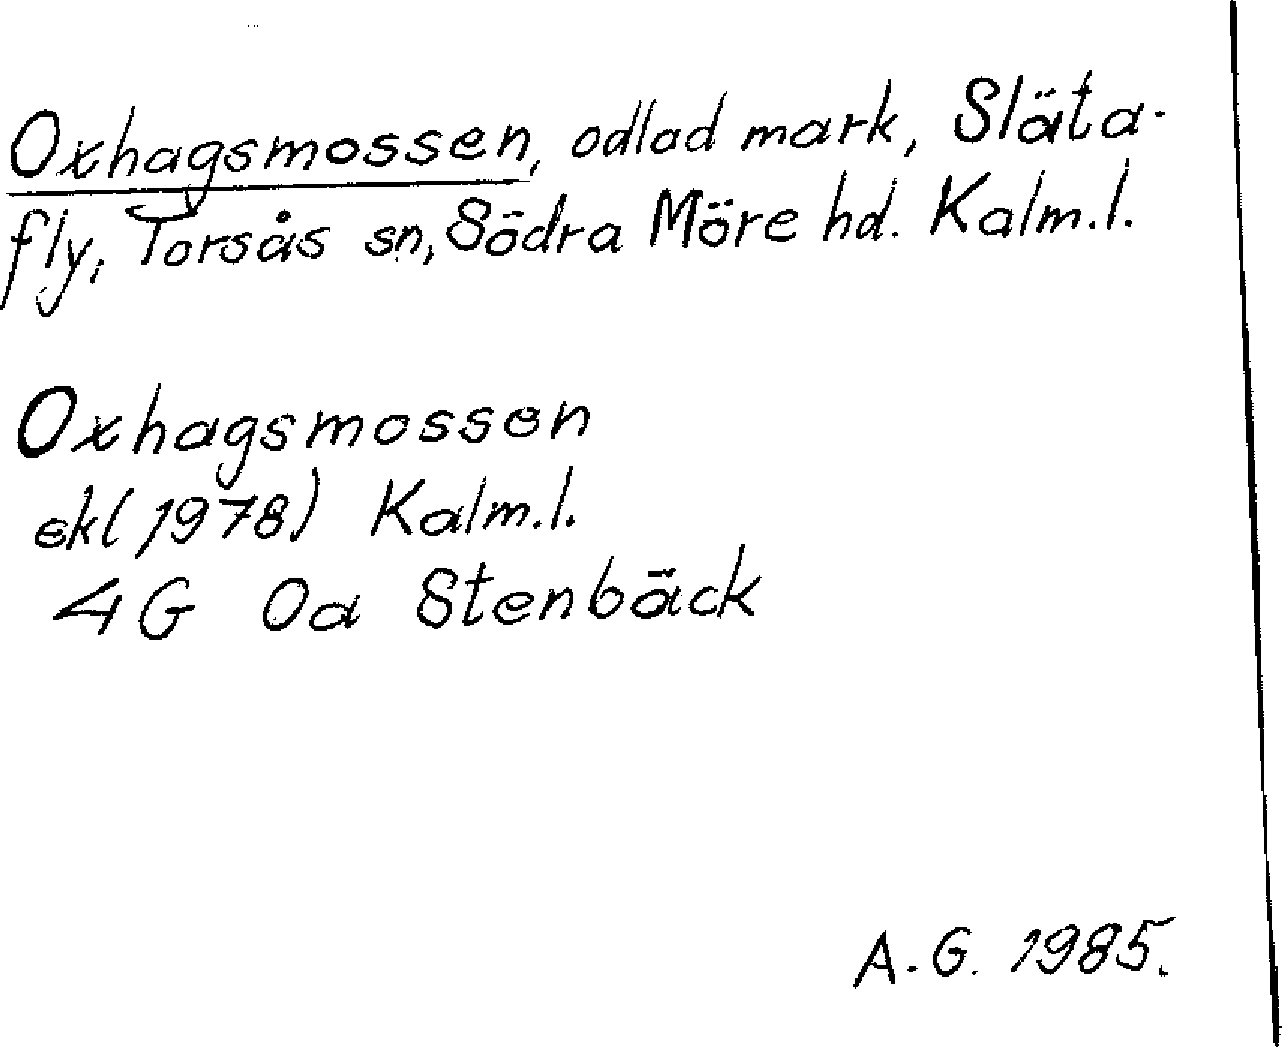 Oxhagsmossen, odlad mark, Släta-
fly, Torsås sn, Södra Möre hd. Kalm.l.
Oxhagsmossen
ekl (1978) Kalm.l.
4G 0a Stenbäck
A.G. 1985.